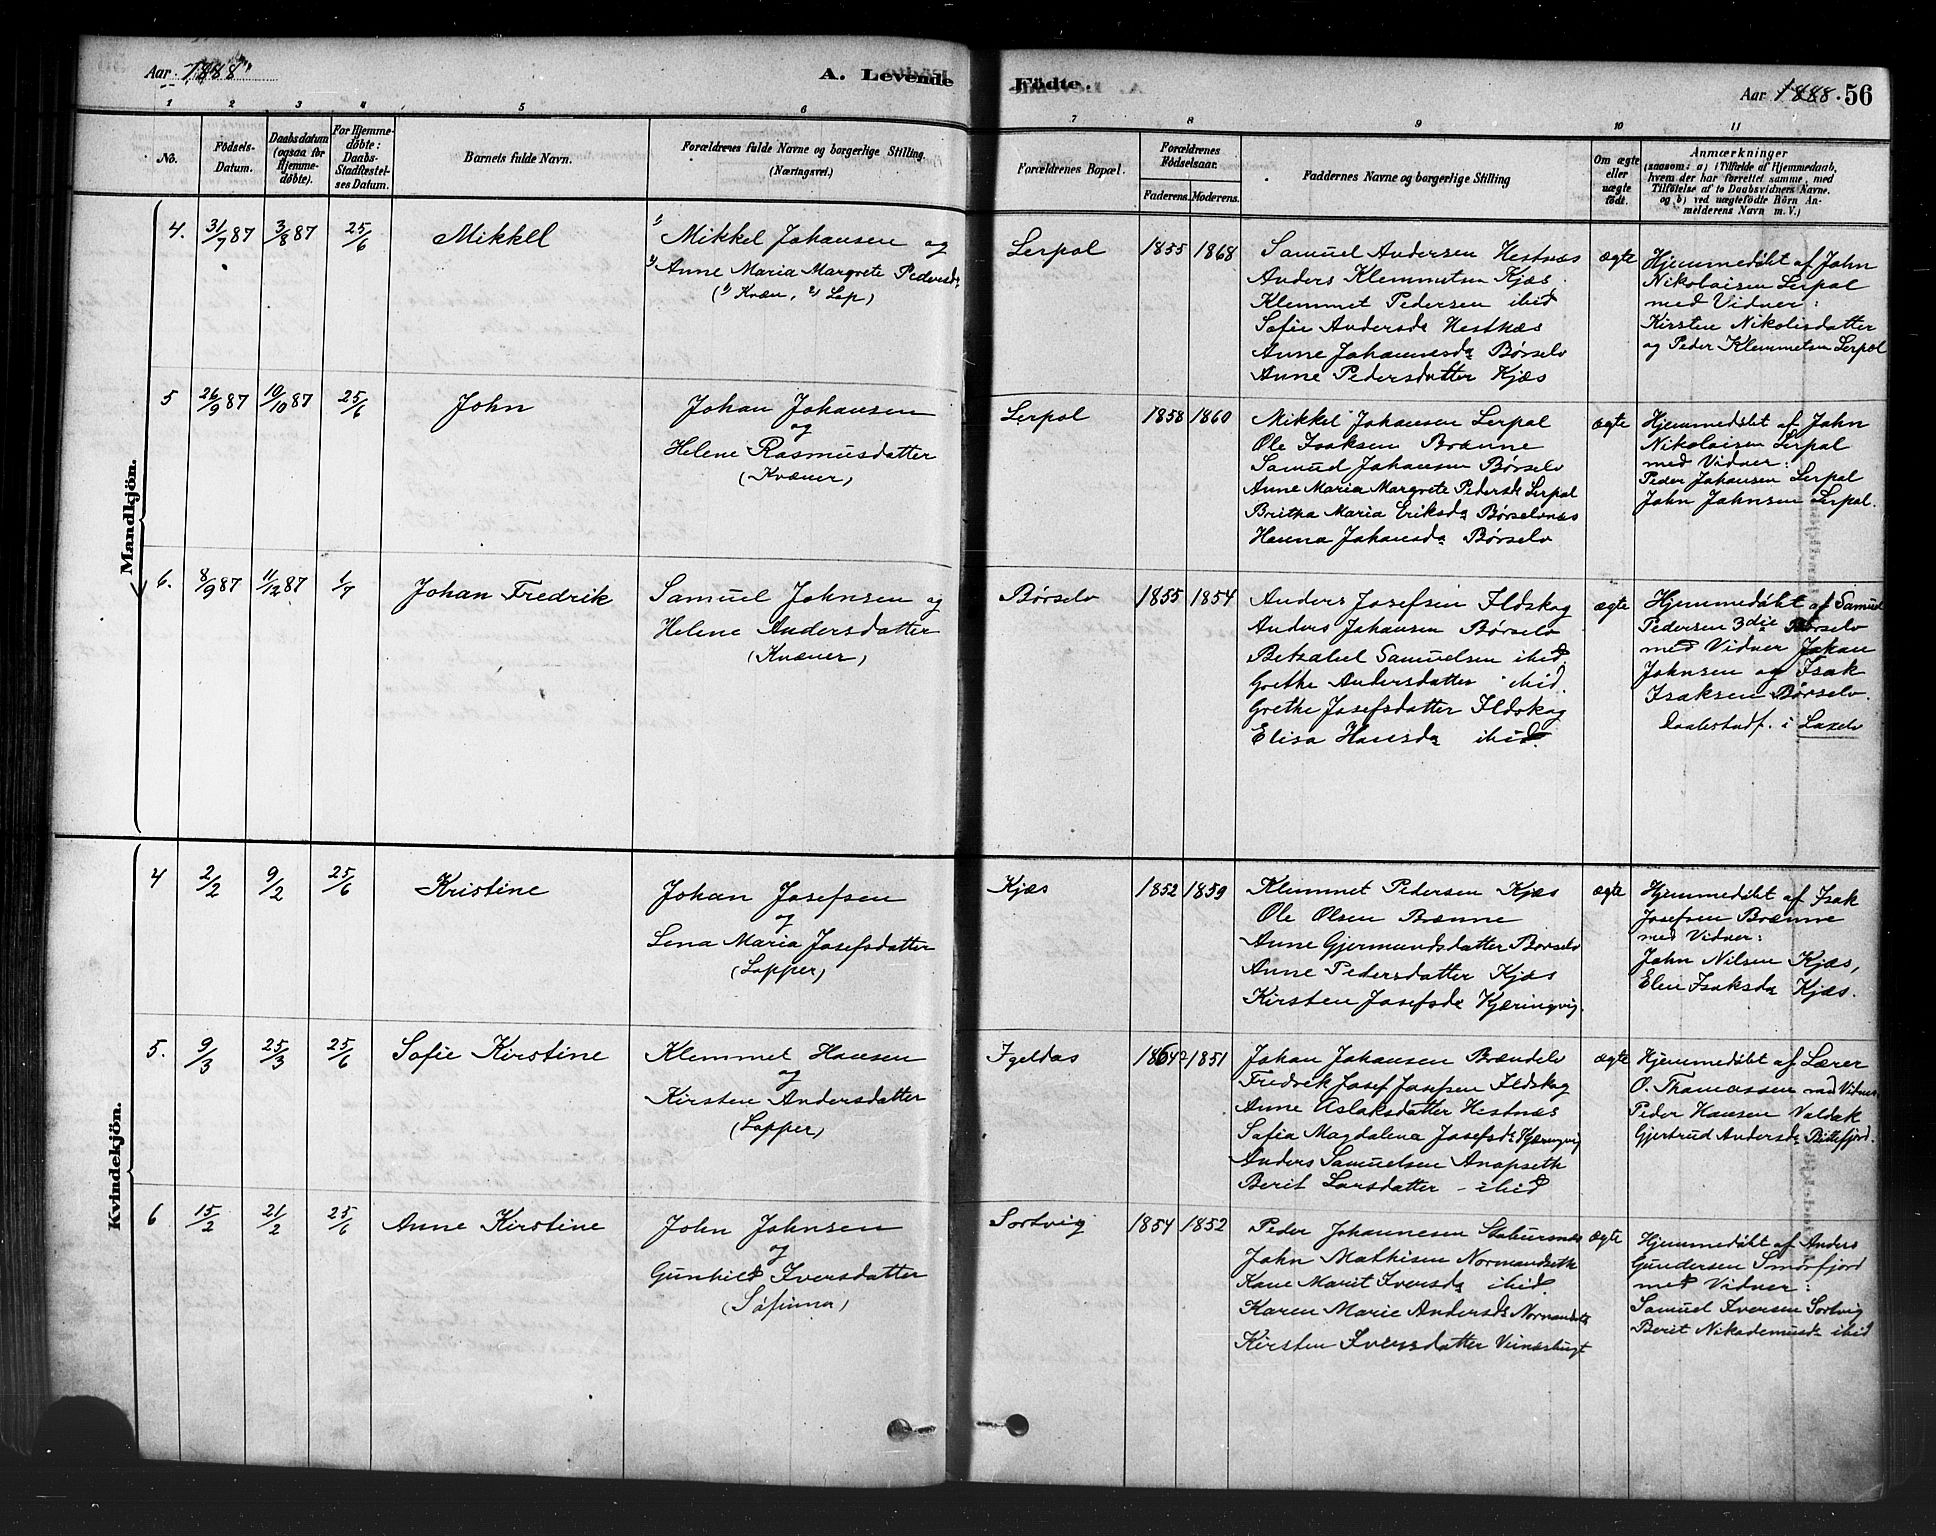 Aar 1888
A. Levende
Födte.
Aar 1888. 56
1 2 3 4 5 6 7 8 9 10 11
No.
Födsels-Datum.
Daabsdatum (ogsaa for Hjemme-døbte).
For Hjemme-døbte: Daabs-Stadfæstel-ses Datum.
Barnets fulde Navn.
Forældrenes fulde Navne og borgerlige Stilling (Næringsvei.)
Forældrenes Bopæl.
Forældrenes Födselsaar.
Faderens. Moderens.
Faddernes Navne og borgerlige Stilling
Om ægte eller uægte födt.
Anmærkninger
(saasom: a) i Tilfælde af Hjemmedaab,
hvem der har forrettet samme, med
Tilføielse af to Daabsvidners Navne.
og b) ved uægtefödte Börn An-
melderens Navn m. V.)
Mandkjön.
4. 31/7 87 3/8 87 25/6 Mikkel
1) Mikkel Johansen og
2) Anne Maria Margrete Pedersdr
(1) Kvæn, 2) Lap)
Lerpol 1855 1868
Samuel Andersen Hestnæs
Anders Klemmetsen Kjæs
Klemmet Pedersen ibid
Sofie Andersda Hestnæs
Anne Johannesda Børselv
Anne Pedersdatter Kjæs
ægte
Hjemmedøbt af John
Nikolaisen Lerpol
med Vidner:
Kirsten Nikolisdatter
og Peder Klemmetsen Lerpol
5 26/9 87 10/10 87 25/6 John
Johan Johansen
og
Helene Rasmusdatter
(Kvæner)
Lerpol 1858 1860
Mikkel Johansen Lerpol
Ole Isaksen Brænne
Samuel Johansen Børselv
Anne Maria Margrete Pedersda Lerpol
Britha Maria Eriksda Børselvnæs
Hanna Johansda Børselv
ægte
Hjemmedøbt af John
Nikolaisen Lerpol
med Vidner:
Peder Johansen Lerpol
John Johnsen Lerpol.
6. 8/9 87 11/12 87 1/7 Johan Fredrik
Samuel Johnsen og
Helene Andersdatter
(Kvæner)
Børselv 1855 1854
Anders Josefsen Ildskog
Anders Johansen Børselv
Betsabel Samuelsen ibid.
Grethe Andersdatter ibid.
Grethe Josefsdatter Ildskog
Elisa Hansda ibid.
ægte
Hjemmedøbt af Samuel
Pedersen 3die Børselv
med Vidner Johan
Johnsen og Isak
Isaksen Børselv.
Daabstadf. i Laxelv
Kvindekjön.
4 2/2 9/2 25/6 Kristine
Johan Josefsen
og
Lena Maria Josefsdatter
(Lapper)
Kjæs 1852 1859
Klemmet Pedersen Kjæs
Ole Olsen Brænne
Anne Gjermundsdatter Børselv
Anne Pedersdatter Kjæs
Kirsten Josefsda Kjæringvig.
ægte
Hjemmedøbt af Isak
Josefsen Brænne
med Vidner:
John Nilsen Kjæs,
Elen Isaksda Kjæs.
5. 9/3 25/3 25/6 Sofie Kirstine
Klemmet Hansen
og
Kirsten Andersdatter
(Lapper)
Igeldas 1851
Johan Johansen Brændelv
Fredrik Josef Josefsen Ildskog
Anne Aslaksdatter Hestnæs
Sofia Magdalena Josefsda Kjæringvig
Anders Samuelsen Anopseth
Berit Larsdatter - ibid
ægte
Hjemmedøbt af Lærer
O. Thomassen med Vidner
Peder Hansen Valdak
Gjertrud Andersda Billefjord.
6 15/2 21/2 25/6 Anne Kirstine
John Johnsen
og
Gunhild Iversdatter
(Søfinner)
Sortvig 1854 1852
Peder Johannesen Stabursnæs
John Mathisen Normandseth
Kane Marit Iversda ibid.
Karen Marie Andersda Normandseth
Kirsten Iversdatter
ægte
Hjemmedøbt af Anders
Gundersen Smørfjord
med Vidner:
Samuel Iversen Sortvig
Berit Nikodemusda ibid